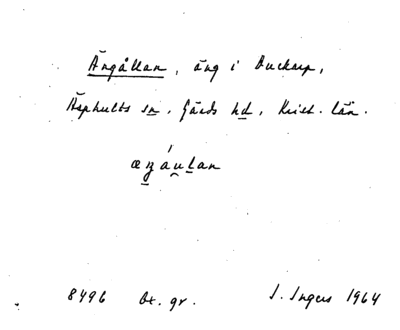 Ängållan, äng i Duckarp,
Äsphults sn, Gärds hd, Krist. län.
8496 Ox. gr. I. Ingers 1964